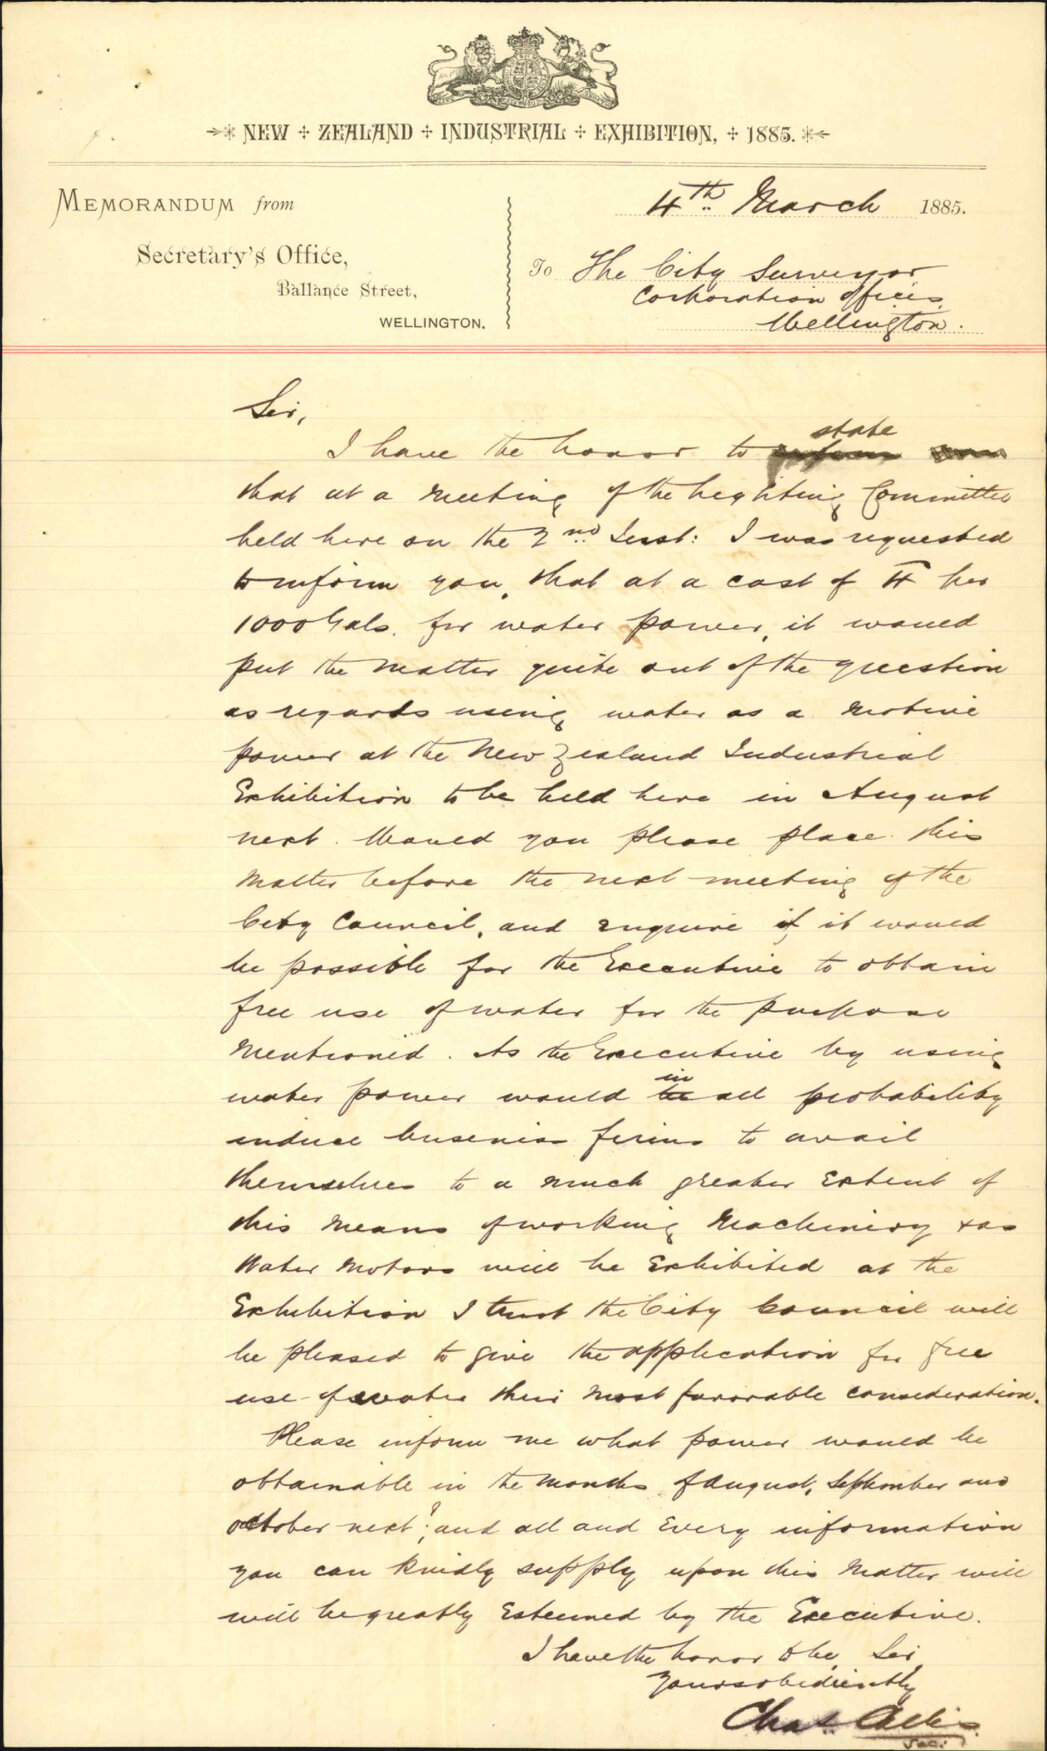 NEW ZEALAND INDUSTRIAL EXHIBITION, 1885.
MEMORANDUM from
Secretary's Office,
Ballance Street,
WELLINGTON.
4th March 1885.
To The City Surveyor
Corporation Offices
Wellington.
Sir,
I have the honor to state
that at a Meeting of the Lighting Committee
held here on the 2nd Inst: I was requested
to inform you, that at a cost of per
1000 Gals. for water power, it would
put the Matter quite out of the question
as regards using water as a Motive
power at the New Zealand Industrial
Exhibition to be held here in August
next. Would you please place this
Matter before the next meeting of the
City Council, and enquire if it would
be possible for the Executive to obtain
free use of water for the purpose
Mentioned. As the Executive by using
water power would in all probability
induce business firms to avail
themselves to a much greater extent of
this Means of working Machinery & as
Water Motors will be Exhibited at the
Exhibition I trust the City Council will
be pleased to give the application for free
use of water their Most favorable consideration.
Please inform me what power would be
obtainable in the Months of August, September and
October next?, and all and Every information
you can kindly supply upon this Matter will
will be greatly Esteemed by the Executive.
I have the honor to be, Sir,
Yours obediently
Chas.
Sec: